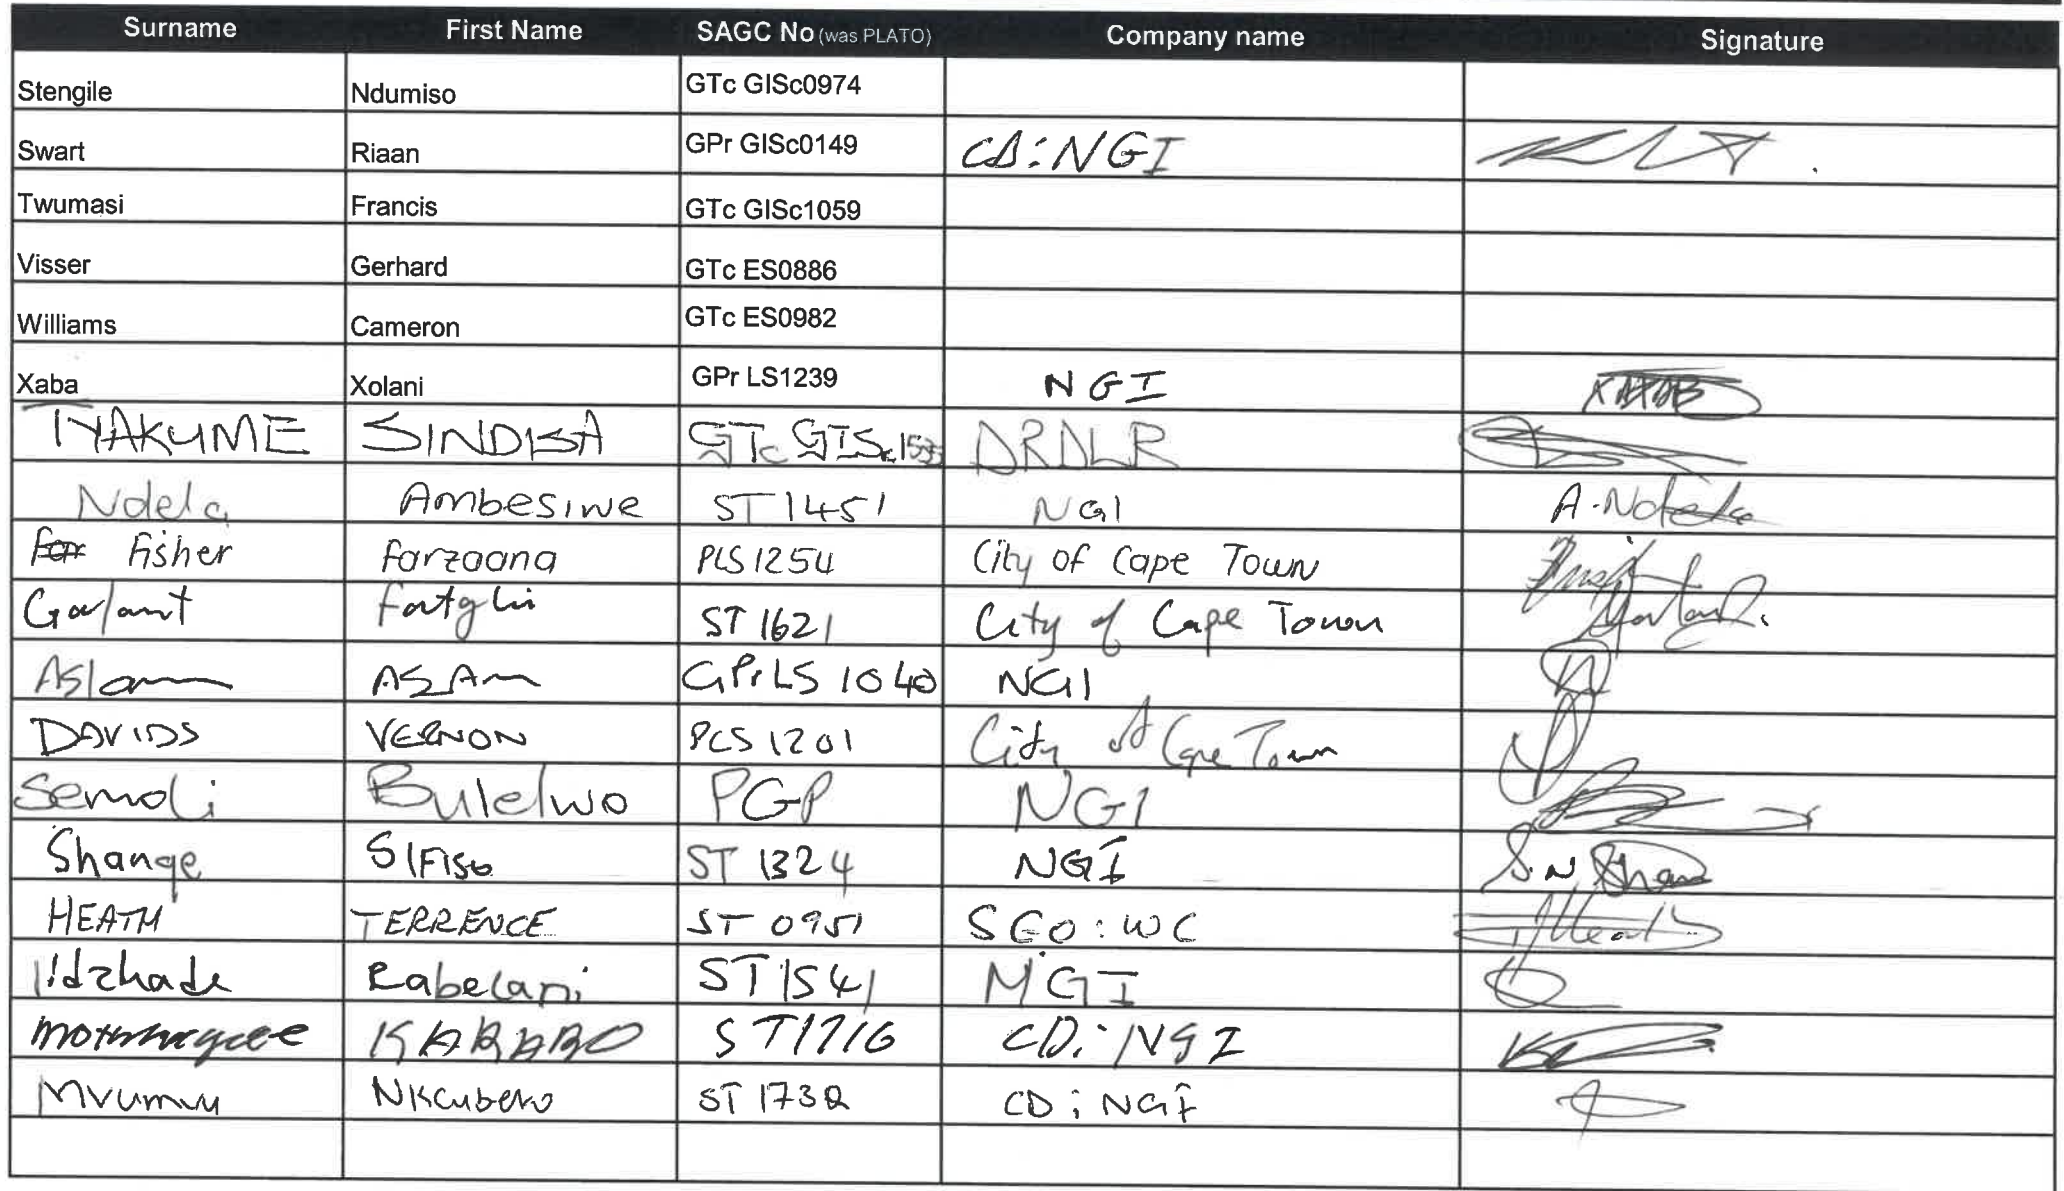 Surname First Name SAGC No (was PLATO) Company name Signature
Stengile Ndumiso GTc GISc0974
Swart Riaan GPr GISc0149 CD:NGI
Twumasi Francis GTc GISc1059
Visser Gerhard GTc ES0886
Williams Cameron GTc ES0982
Xaba Xolani GPr LS1239 NGI
TYAKUME SINDISA GTc GISc DRDLR
Ndela Ambesiwe ST 1451 NGI A.Ndela
Fisher Farzoana PLS1254 City of Cape Town
Garlant ST 1621 City of Cape Town
Aslam ASLAm GPrLS 1040 NGI
DAVIDS VERNON PLS 1201 City of Cape Town
Semoli Bulelwo PGP NGI
Shange SIFISO ST 1324 NGI S.N
HEATH TERRENCE ST 0951 SGO:WC
Rabelani ST 1541 NGI
KARABO ST1716 CD:NGI
Mvumvu Nkcubeko ST 1732 CD:NGI